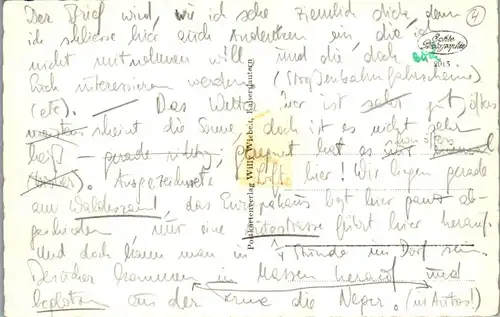 Der Brief wird, wie ich sehe ziemlich dick, denn
ich schliesse hier auch Andenken ein, die ich
nicht mitnehmen will und die doch auch
Euch interessieren werden (Straßenbahnfahrscheine)
(etc). Das Wetter hier ist sehr gut, öfters
scheint die Sonne, doch ist es nicht sehr
heiß – gerade richtig, geregnet hat es schon öfters
hier! Wir liegen gerade
am Waldesrand, das Europahaus liegt hier ganz ab-
geschieden nur eine Autostrasse führt hier herauf.
Und doch kann man in 1/4 Stunde im Dorf sein.
Besucher kommen in Massen herauf und
aus der die Neger. (in Autos!)
4
Echte Photographie
2015
Postkartenverlag Willy Wiebelt, Kaiserslautern